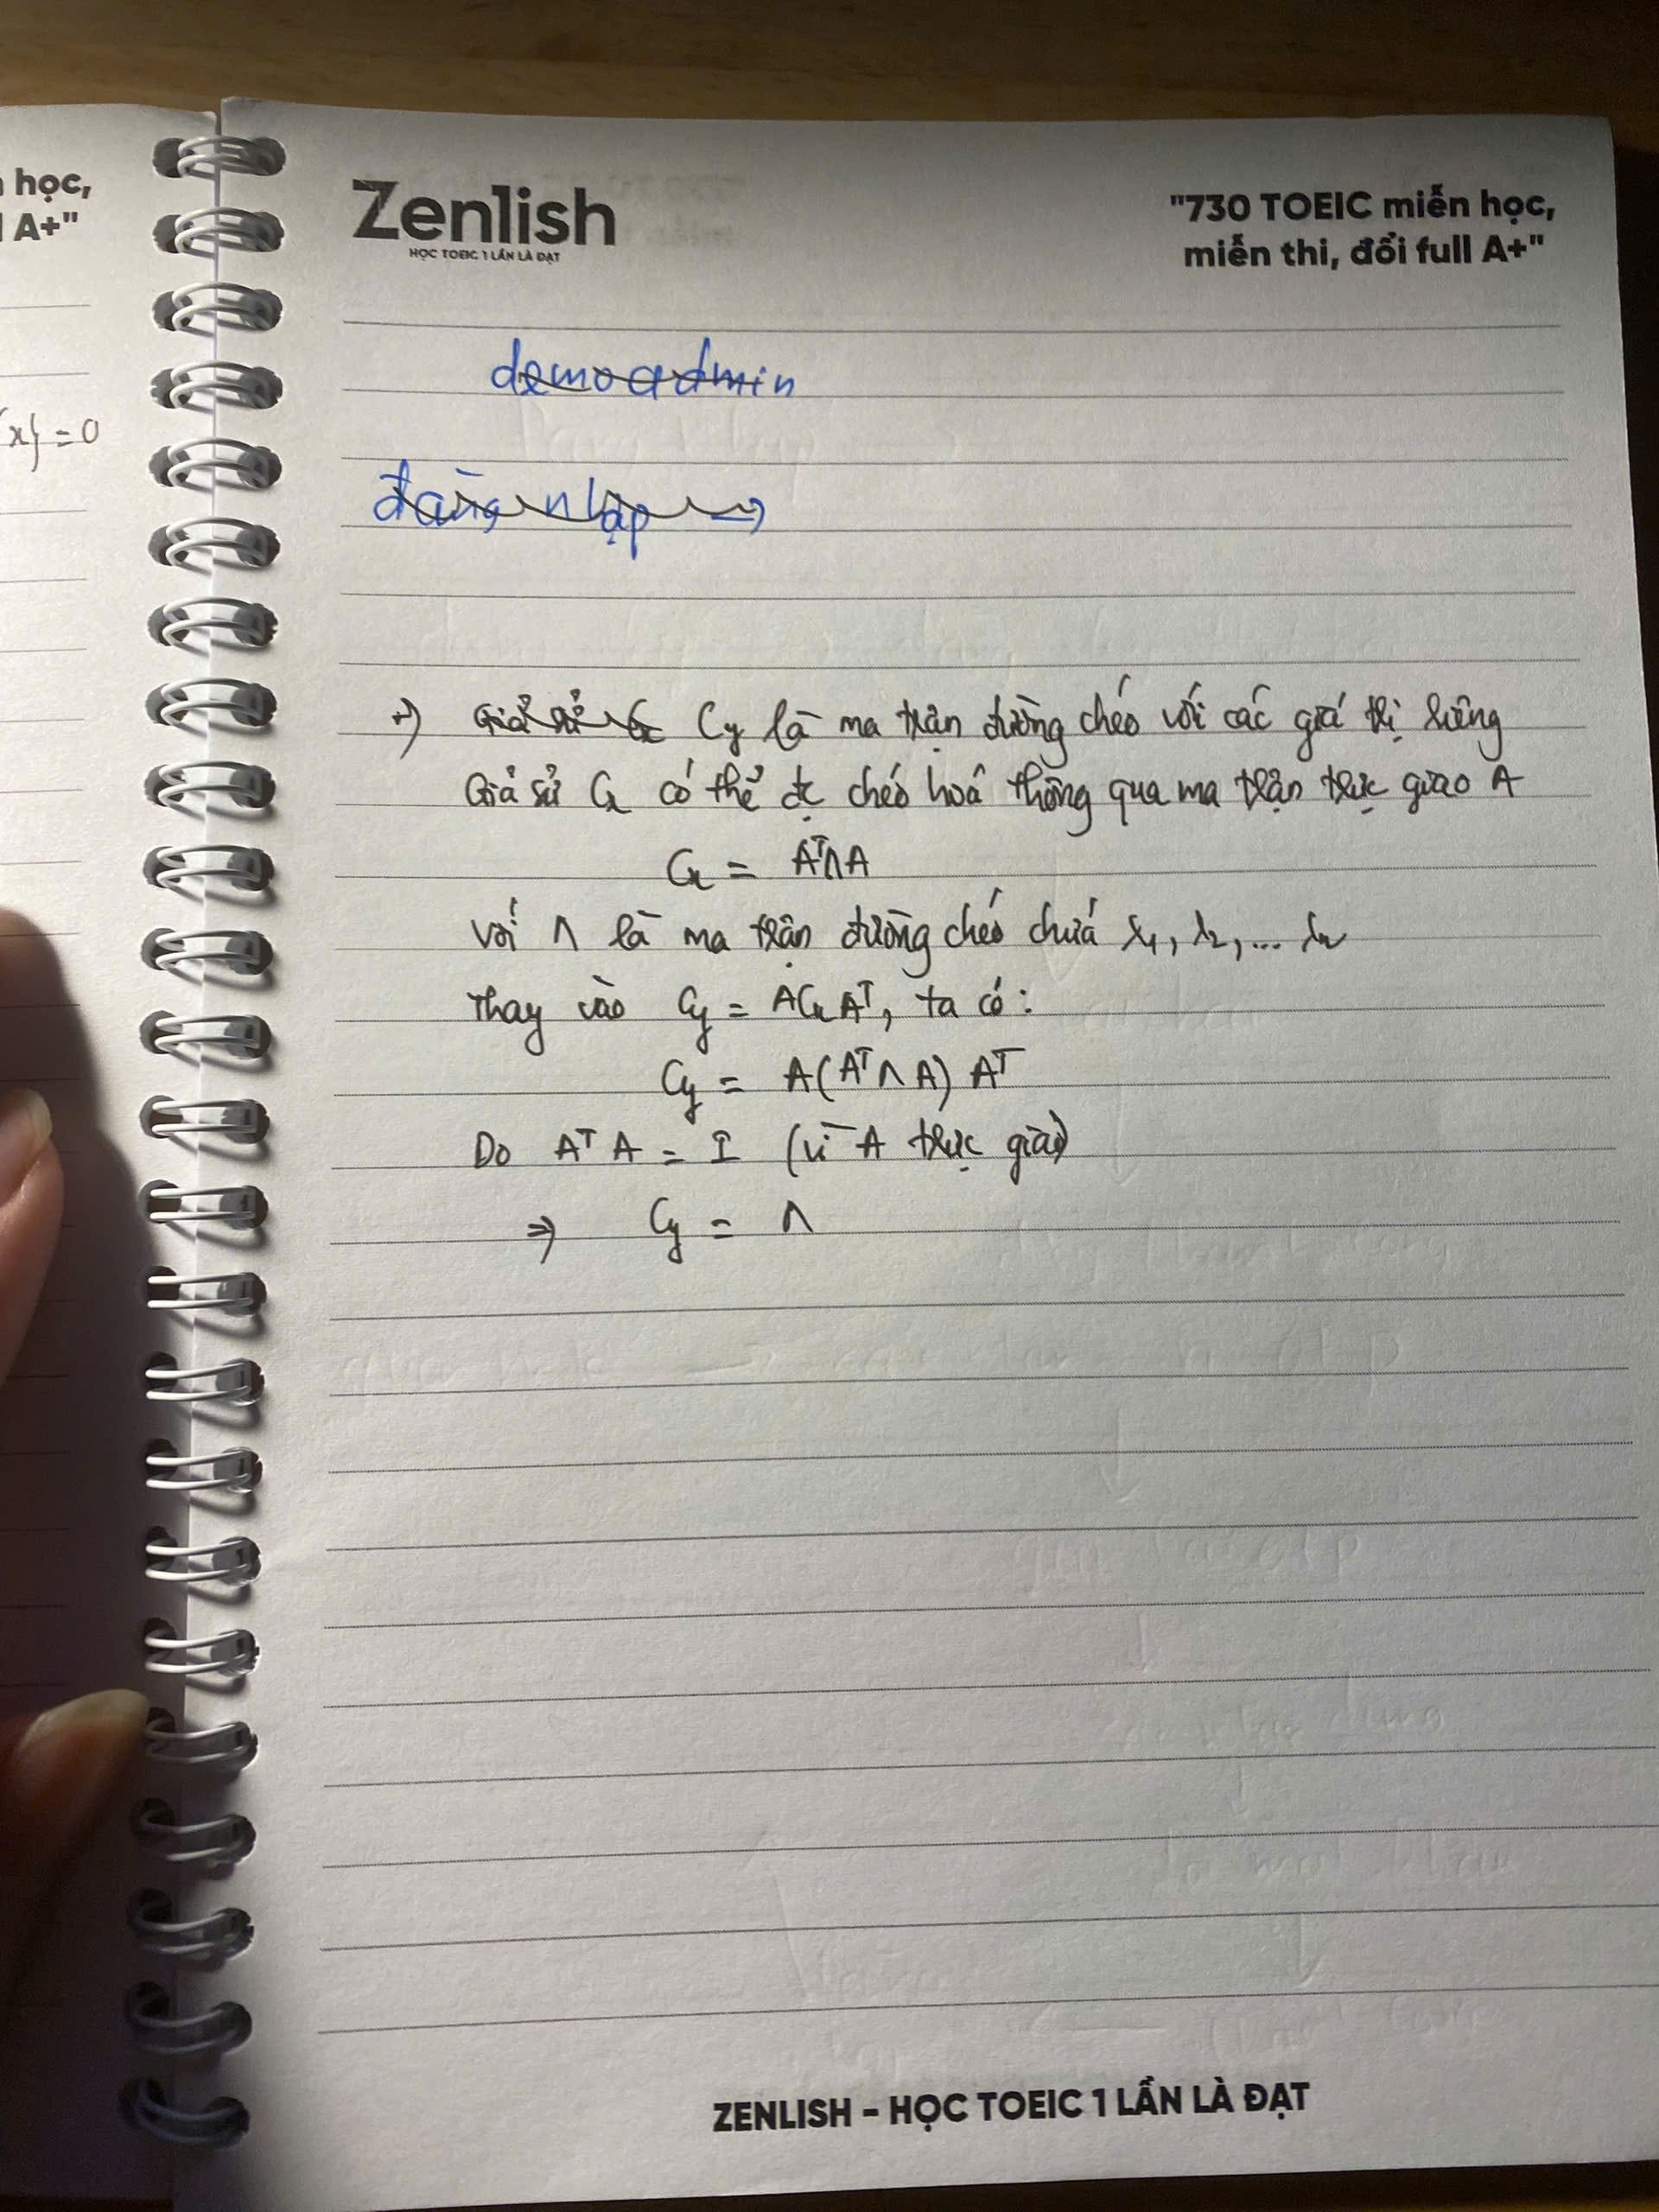 học,
A+"
x} = 0
Zenlish
HỌC TOEIC 1 LẦN LÀ ĐẠT
"730 TOEIC miễn học,
miễn thi, đổi full A+"
demoadmin
đăng nhập →
+) Giả sử Cx Cy là ma trận đường chéo với các giá trị riêng
Giả sử Cx có thể đc chéo hoá thông qua ma trận trực giao A
Cx = AᵀΛA
với Λ là ma trận đường chéo chứa λ1, λ2, ... λn
Thay vào Cy = ACxAᵀ, ta có:
Cy = A(AᵀΛA) Aᵀ
Do AᵀA = I (vì A trực giao)
⇒ Cy = Λ
ZENLISH - HỌC TOEIC 1 LẦN LÀ ĐẠT